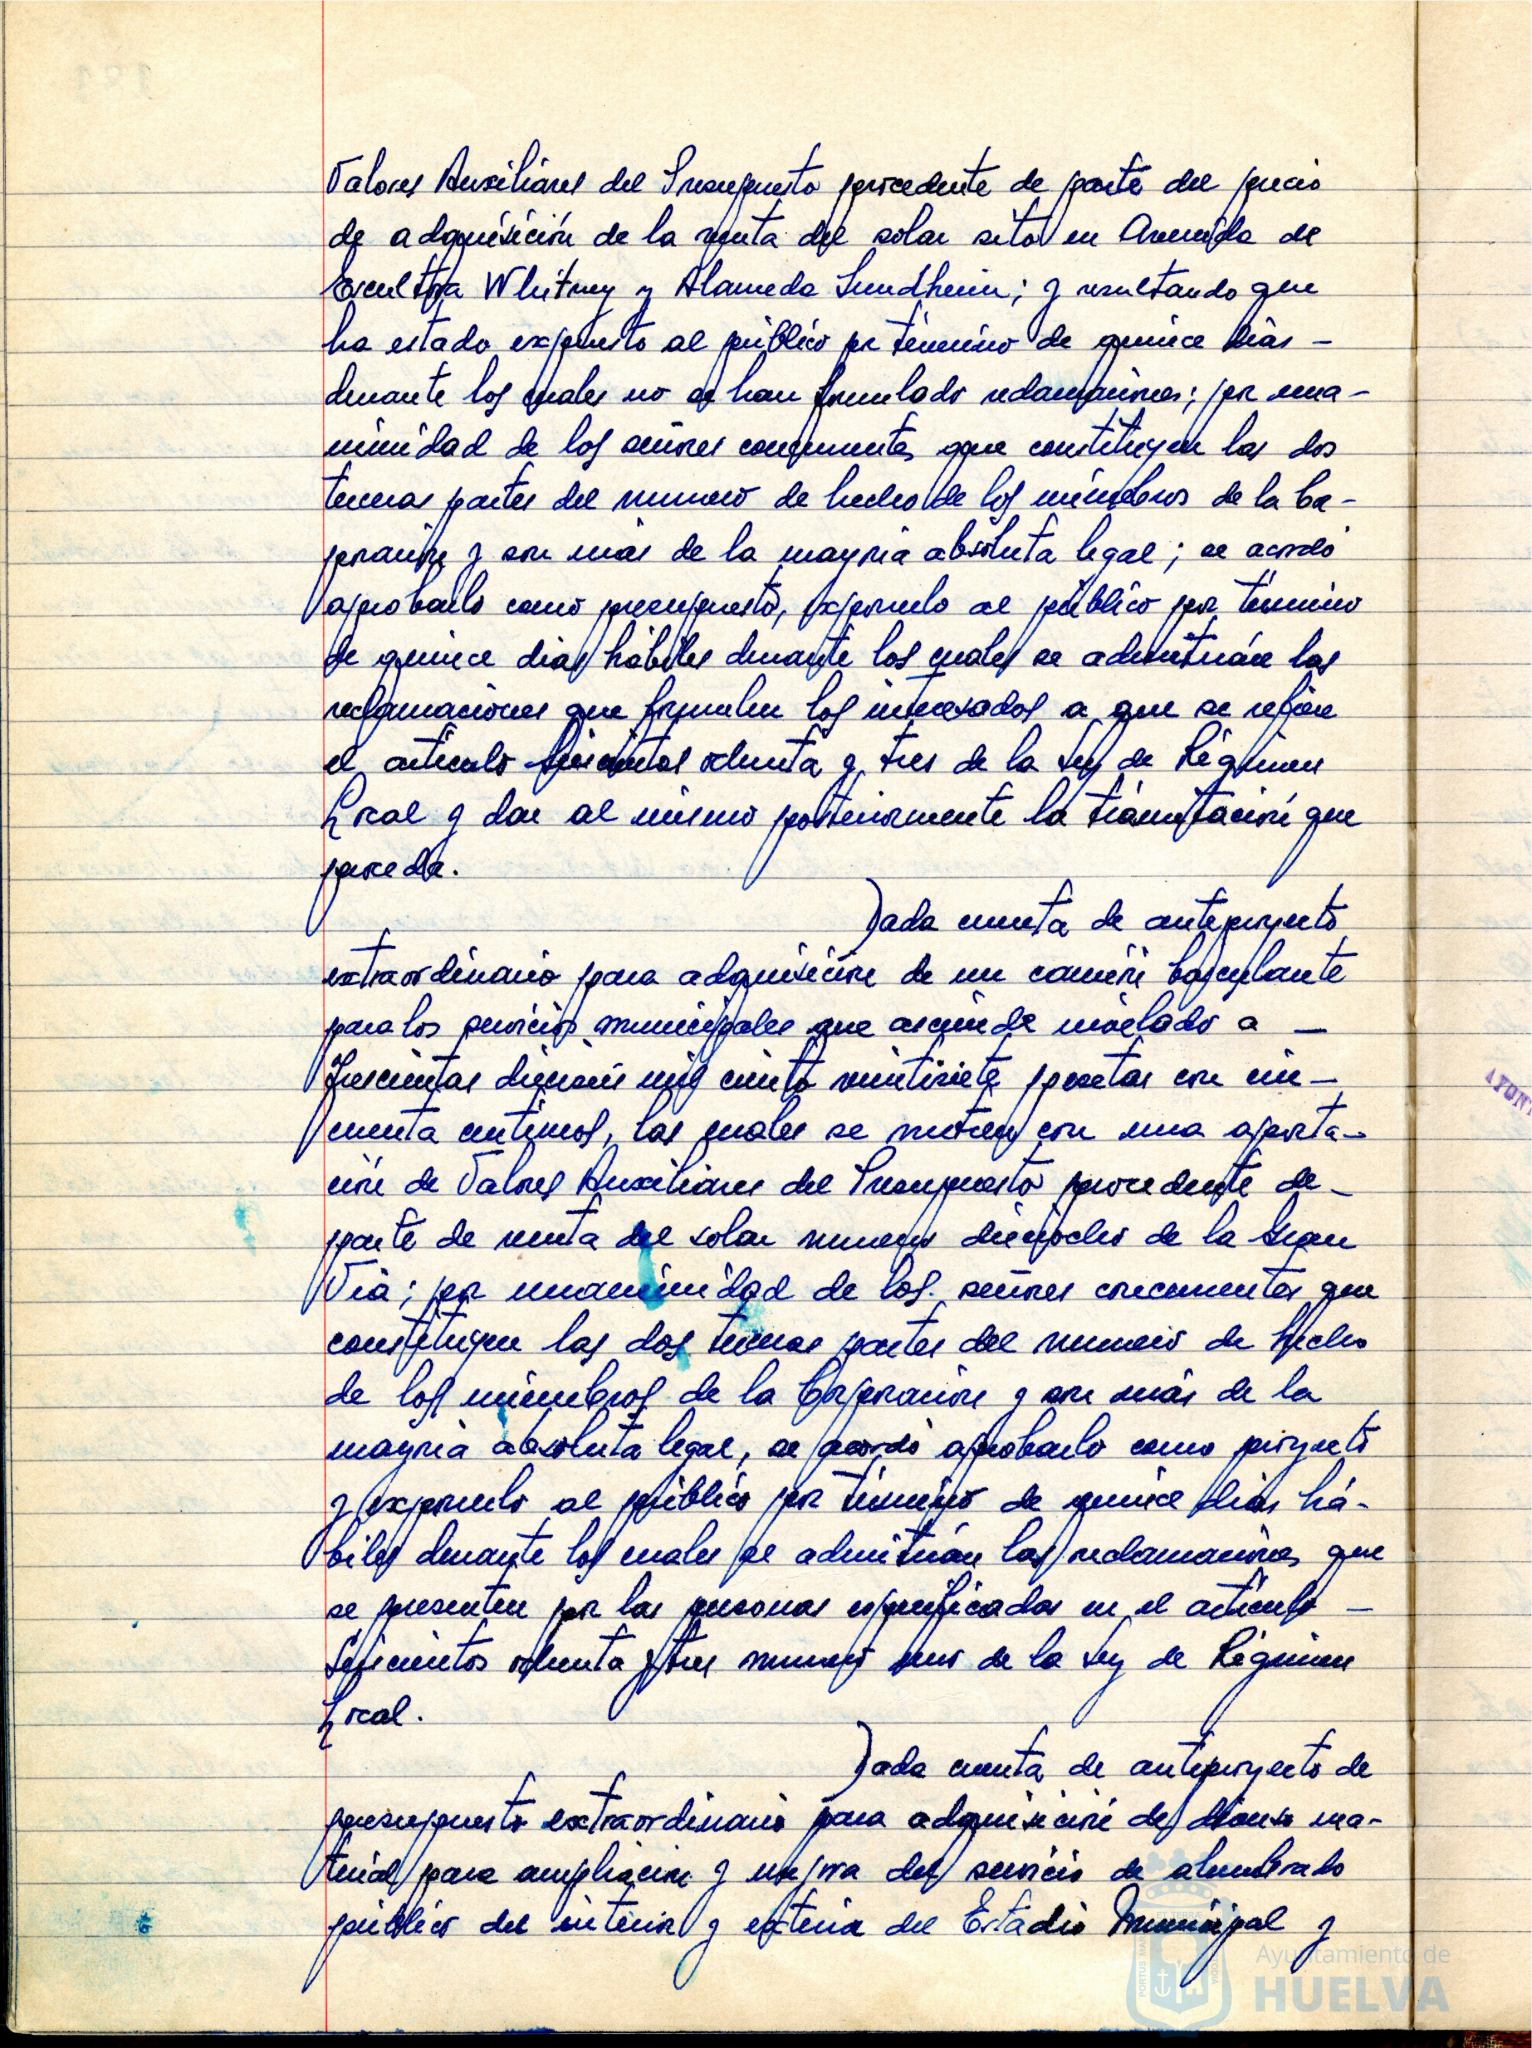 Valores Auxiliares del Presupuesto procedente de parte del precio
de adquisición de la venta del solar sito en Avenida de
Escultora Whitney y Alameda Sundheim; y resultando que
ha estado expuesto al público por término de quince días -
durante los cuales no se han formulado reclamaciones; por una-
nimidad de los señores concurrentes que constituyen las dos
terceras partes del número de hecho de los miembros de la Co-
rporación y son más de la mayoría absoluta legal; se acordó
aprobarlo como presupuesto, exponerlo al público por término
de quince días hábiles durante los cuales se admitirán las
reclamaciones que formulen los interesados a que se refiere
el artículo seiscientos ochenta y tres de la Ley de Régimen
Local y dar al mismo posteriormente la tramitación que
proceda.
Dada cuenta de anteproyecto
extraordinario para adquisición de un camión basculante
para los servicios municipales que asciende nivelado a -
trescientas dieciseis mil ciento veintisiete pesetas con cin-
cuenta céntimos, las cuales se nutren con una aporta-
ción de Valores Auxiliares del Presupuesto procedente de-
parte de venta del solar número dieciocho de la Gran
Vía; por unanimidad de los señores concurrentes que
constituyen las dos terceras partes del número de hecho
de los miembros de la Corporación y son más de la
mayoría absoluta legal, se acordó aprobarlo como proyecto
y exponerlo al público por término de quince días há-
biles durante los cuales se admitirán las reclamaciones que
se presenten por las personas especificadas en el artículo -
seiscientos ochenta y tres número uno de la Ley de Régimen
Local.
Dada cuenta de anteproyecto de
presupuesto extraordinario para adquisición de diverso ma-
terial para ampliación y mejora del servicio de alumbrado
público del interior y exterior del Estadio Municipal y
Ayuntamiento de
HUELVA